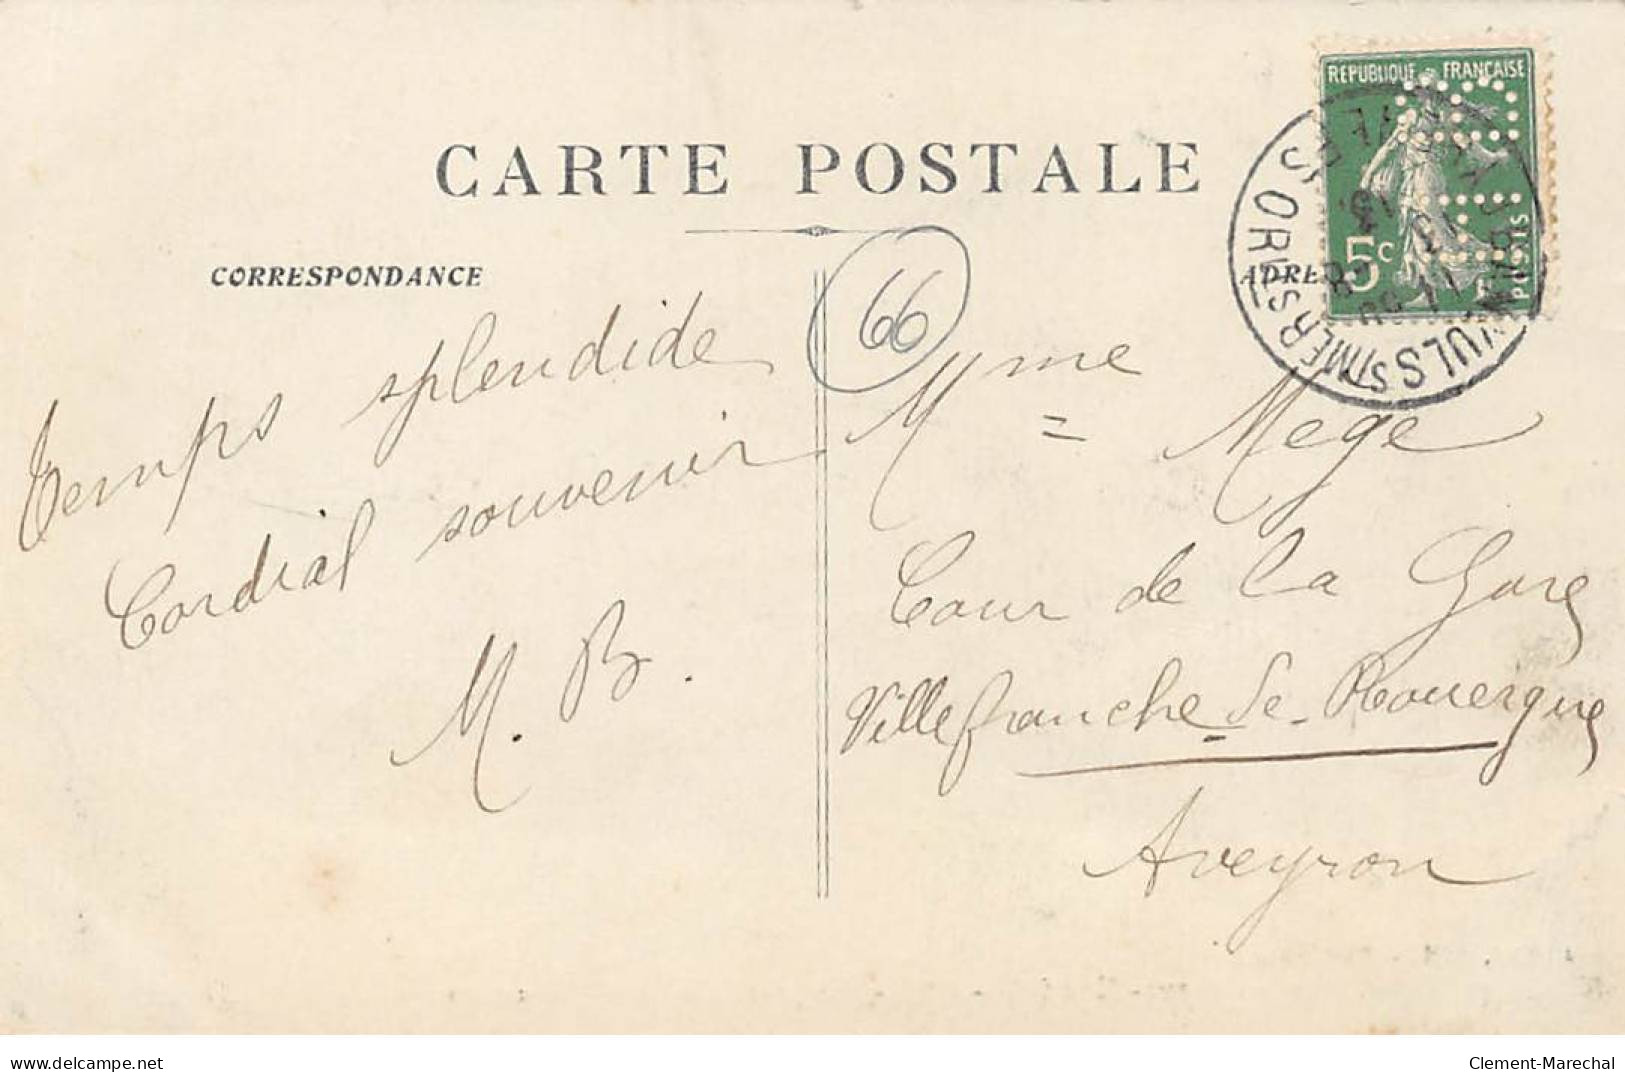 CARTE POSTALE
CORRESPONDANCE
66
REPUBLIQUE FRANCAISE
5c
POSTES
Temps splendide
Cordial souvenir
M. B.
Mme Mege
Cour de la Gare
Villefranche-de-Rouergue
Aveyron
www.delcampe.net
Clement-Marechal